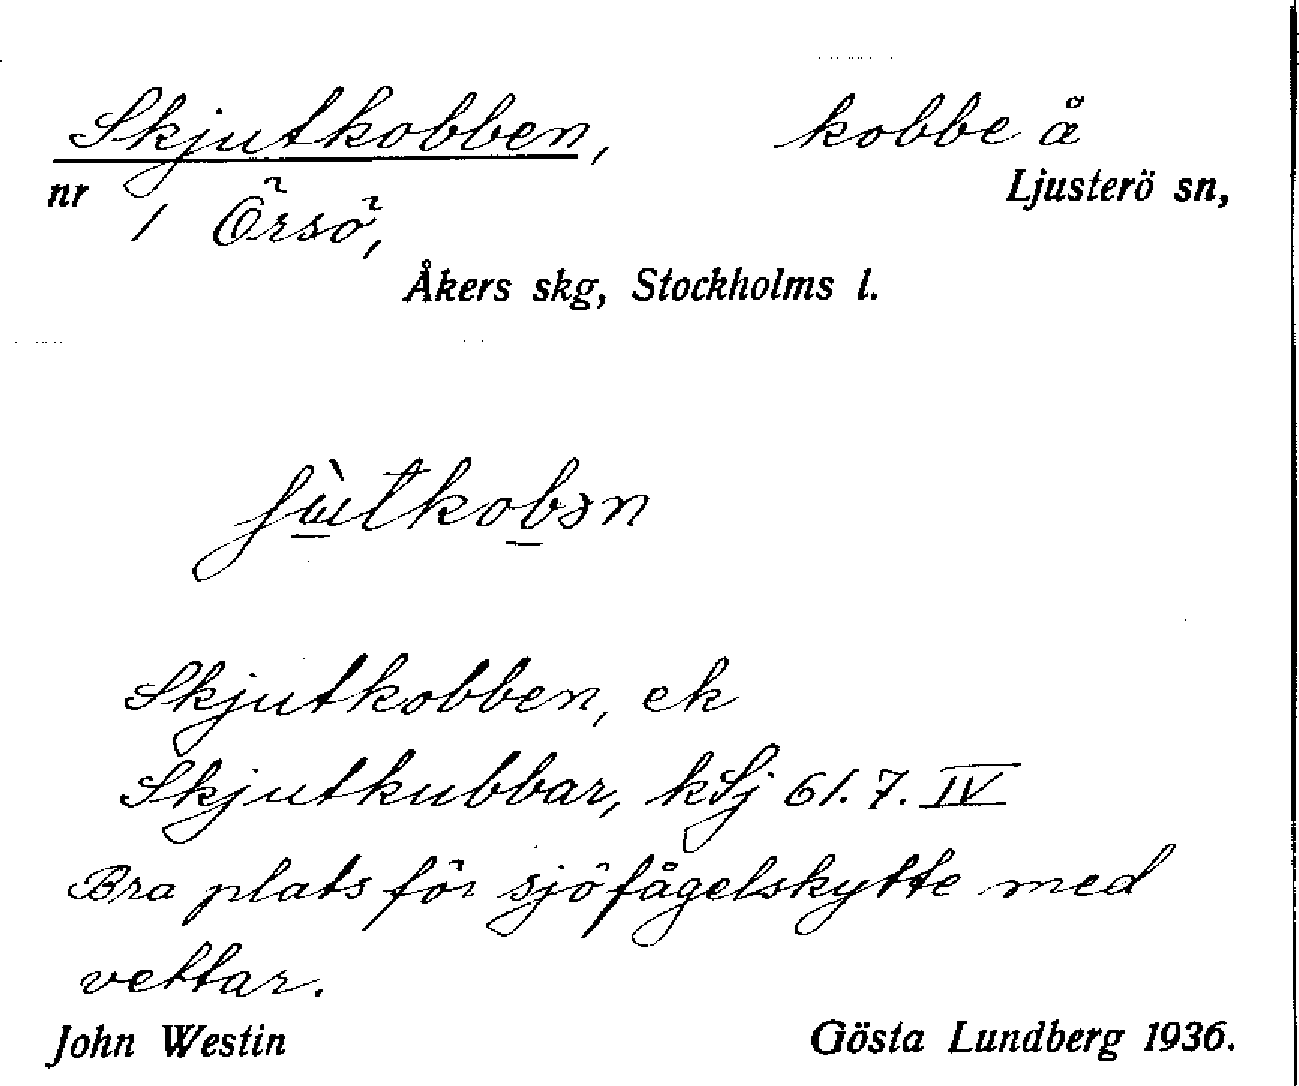 Skjutkobben, kobbe å
nr 1 Örsö, Ljusterö sn,
Åkers skg, Stockholms l.
Skjutkobben, ek
Skjutkubbar, kSj 61.7.IV
Bra plats för sjöfågelskytte med
vettar.
John Westin Gösta Lundberg 1936.